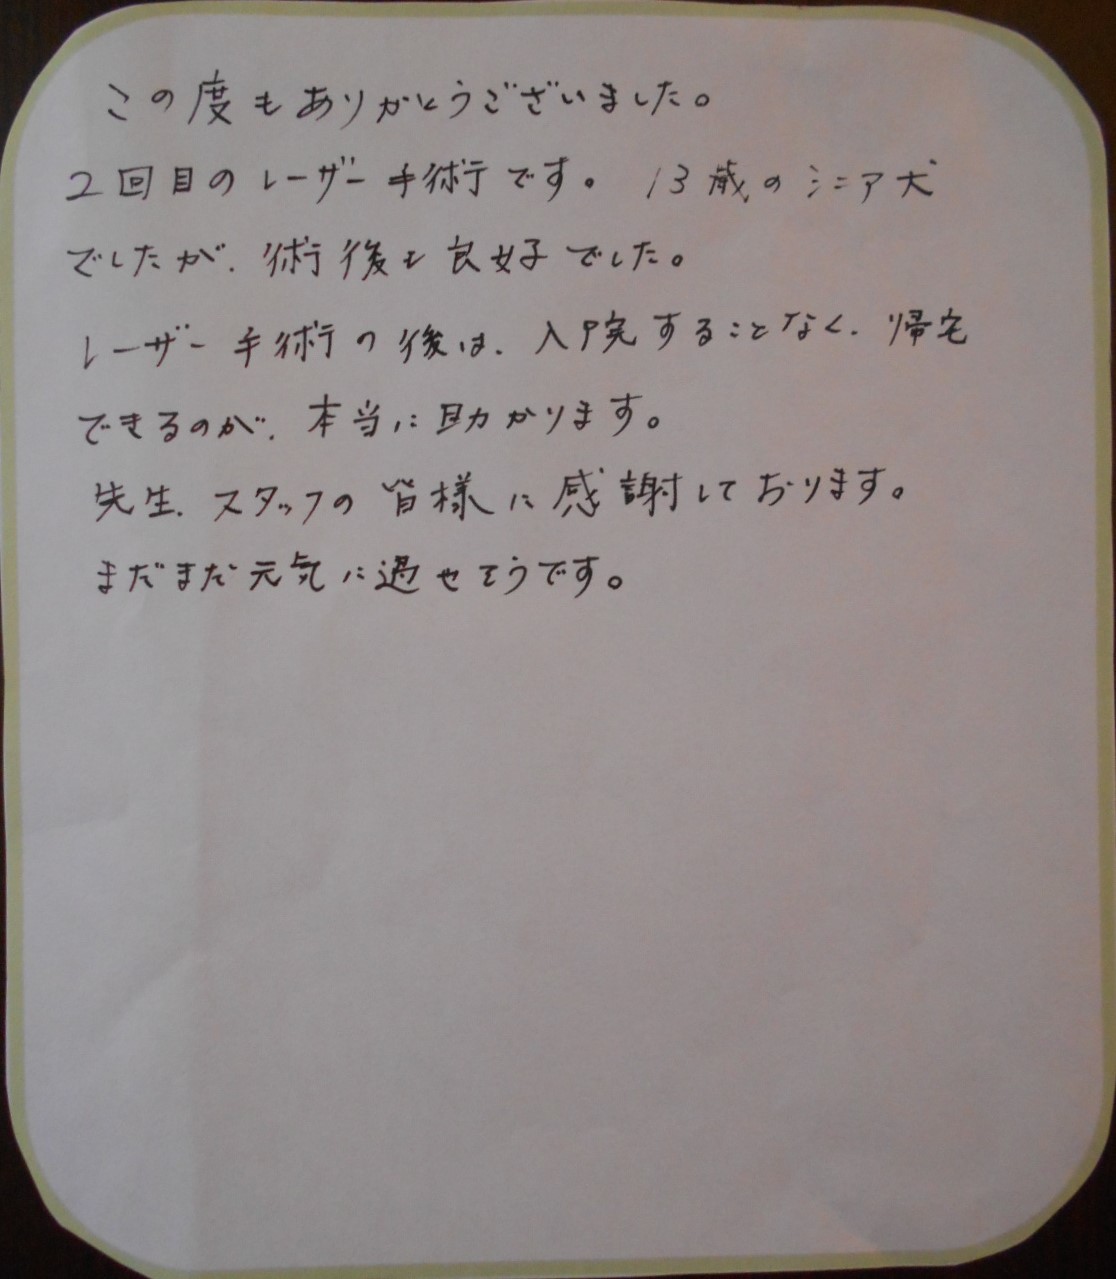 この度もありがとうございました。
2回目のレーザー手術です。 13歳のシニア犬
でしたが、術後も良好でした。
レーザー手術の後は、入院することなく、帰宅
できるのが、本当に助かります。
先生、スタッフの皆様に感謝しております。
まだまだ元気に過せそうです。